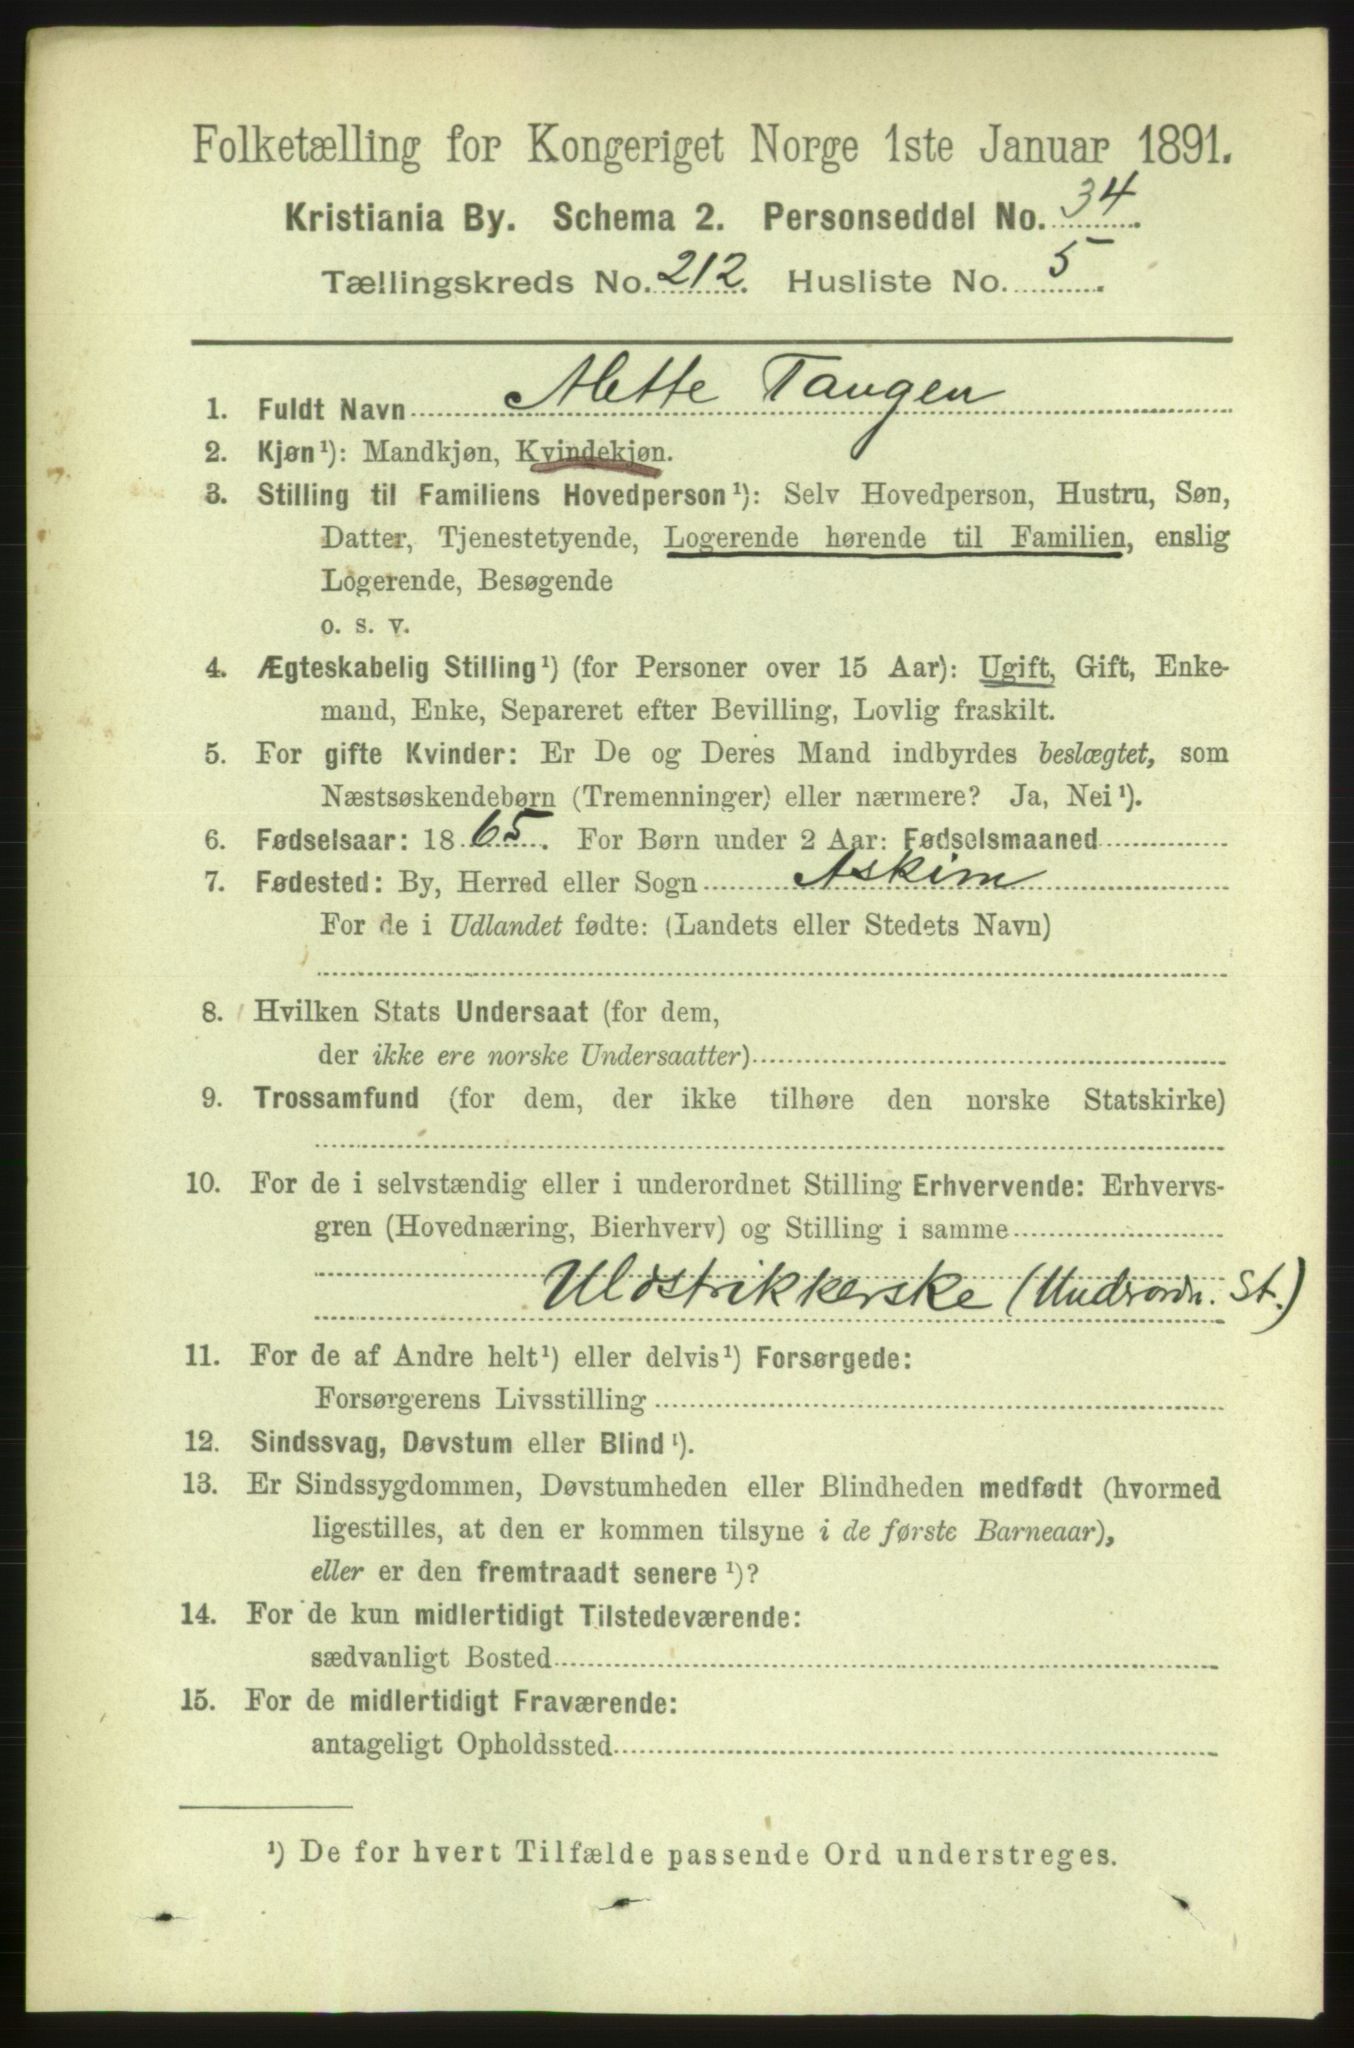 Folketælling for Kongeriget Norge 1ste Januar 1891.
Kristiania By. Schema 2. Personseddel No. 34.
Tællingskreds No. 212. Husliste No. 5.
1. Fuldt Navn Alette Tangen
2. Kjøn¹): Mandkjøn, Kvindekjøn.
3. Stilling til Familiens Hovedperson¹): Selv Hovedperson, Hustru, Søn,
Datter, Tjenestetyende, Logerende hørende til Familien, enslig
Logerende, Besøgende
o. s. v.
4. Ægteskabelig Stilling¹) (for Personer over 15 Aar): Ugift, Gift, Enke-
mand, Enke, Separeret efter Bevilling, Lovlig fraskilt.
5. For gifte Kvinder: Er De og Deres Mand indbyrdes beslægtet, som
Næstsøskendebørn (Tremenninger) eller nærmere? Ja, Nei¹).
6. Fødselsaar: 1865. For Børn under 2 Aar: Fødselsmaaned
7. Fødested: By, Herred eller Sogn Askim
For de i Udlandet fødte: (Landets eller Stedets Navn)
8. Hvilken Stats Undersaat (for dem,
der ikke ere norske Undersaatter)
9. Trossamfund (for dem, der ikke tilhøre den norske Statskirke)
10. For de i selvstændig eller i underordnet Stilling Erhvervende: Erhvervs-
gren (Hovednæring, Bierhverv) og Stilling i samme
Uldstrikkerske (Underordn. St.)
11. For de af Andre helt¹) eller delvis¹) Forsørgede:
Forsørgerens Livsstilling
12. Sindssvag, Døvstum eller Blind¹).
13. Er Sindssygdommen, Døvstumheden eller Blindheden medfødt (hvormed
ligestilles, at den er kommen tilsyne i de første Barneaar),
eller er den fremtraadt senere¹)?
14. For de kun midlertidigt Tilstedeværende:
sædvanligt Bosted
15. For de midlertidigt Fraværende:
antageligt Opholdssted
¹) De for hvert Tilfælde passende Ord understreges.